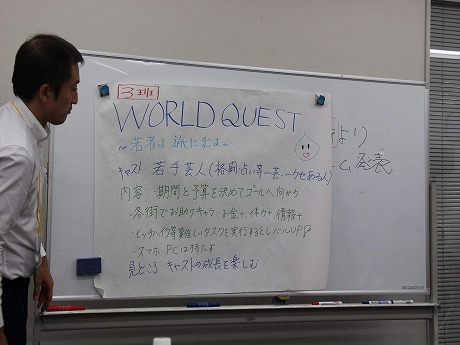 3班
WORLD QUEST
~若者よ旅に出よ~
キャスト 若手芸人(格闘・占い等一芸、一クセある人)
内容・期間と予算を決めてゴールへ向かう
・各街でお助けキャラ・お金+、体力+ 情報+
・ヒッチハイク等難しいタスクを実行するとレベルUP
・スマホ、PCは持たず
見どころ:キャストの成長を楽しむ
より
ム発表